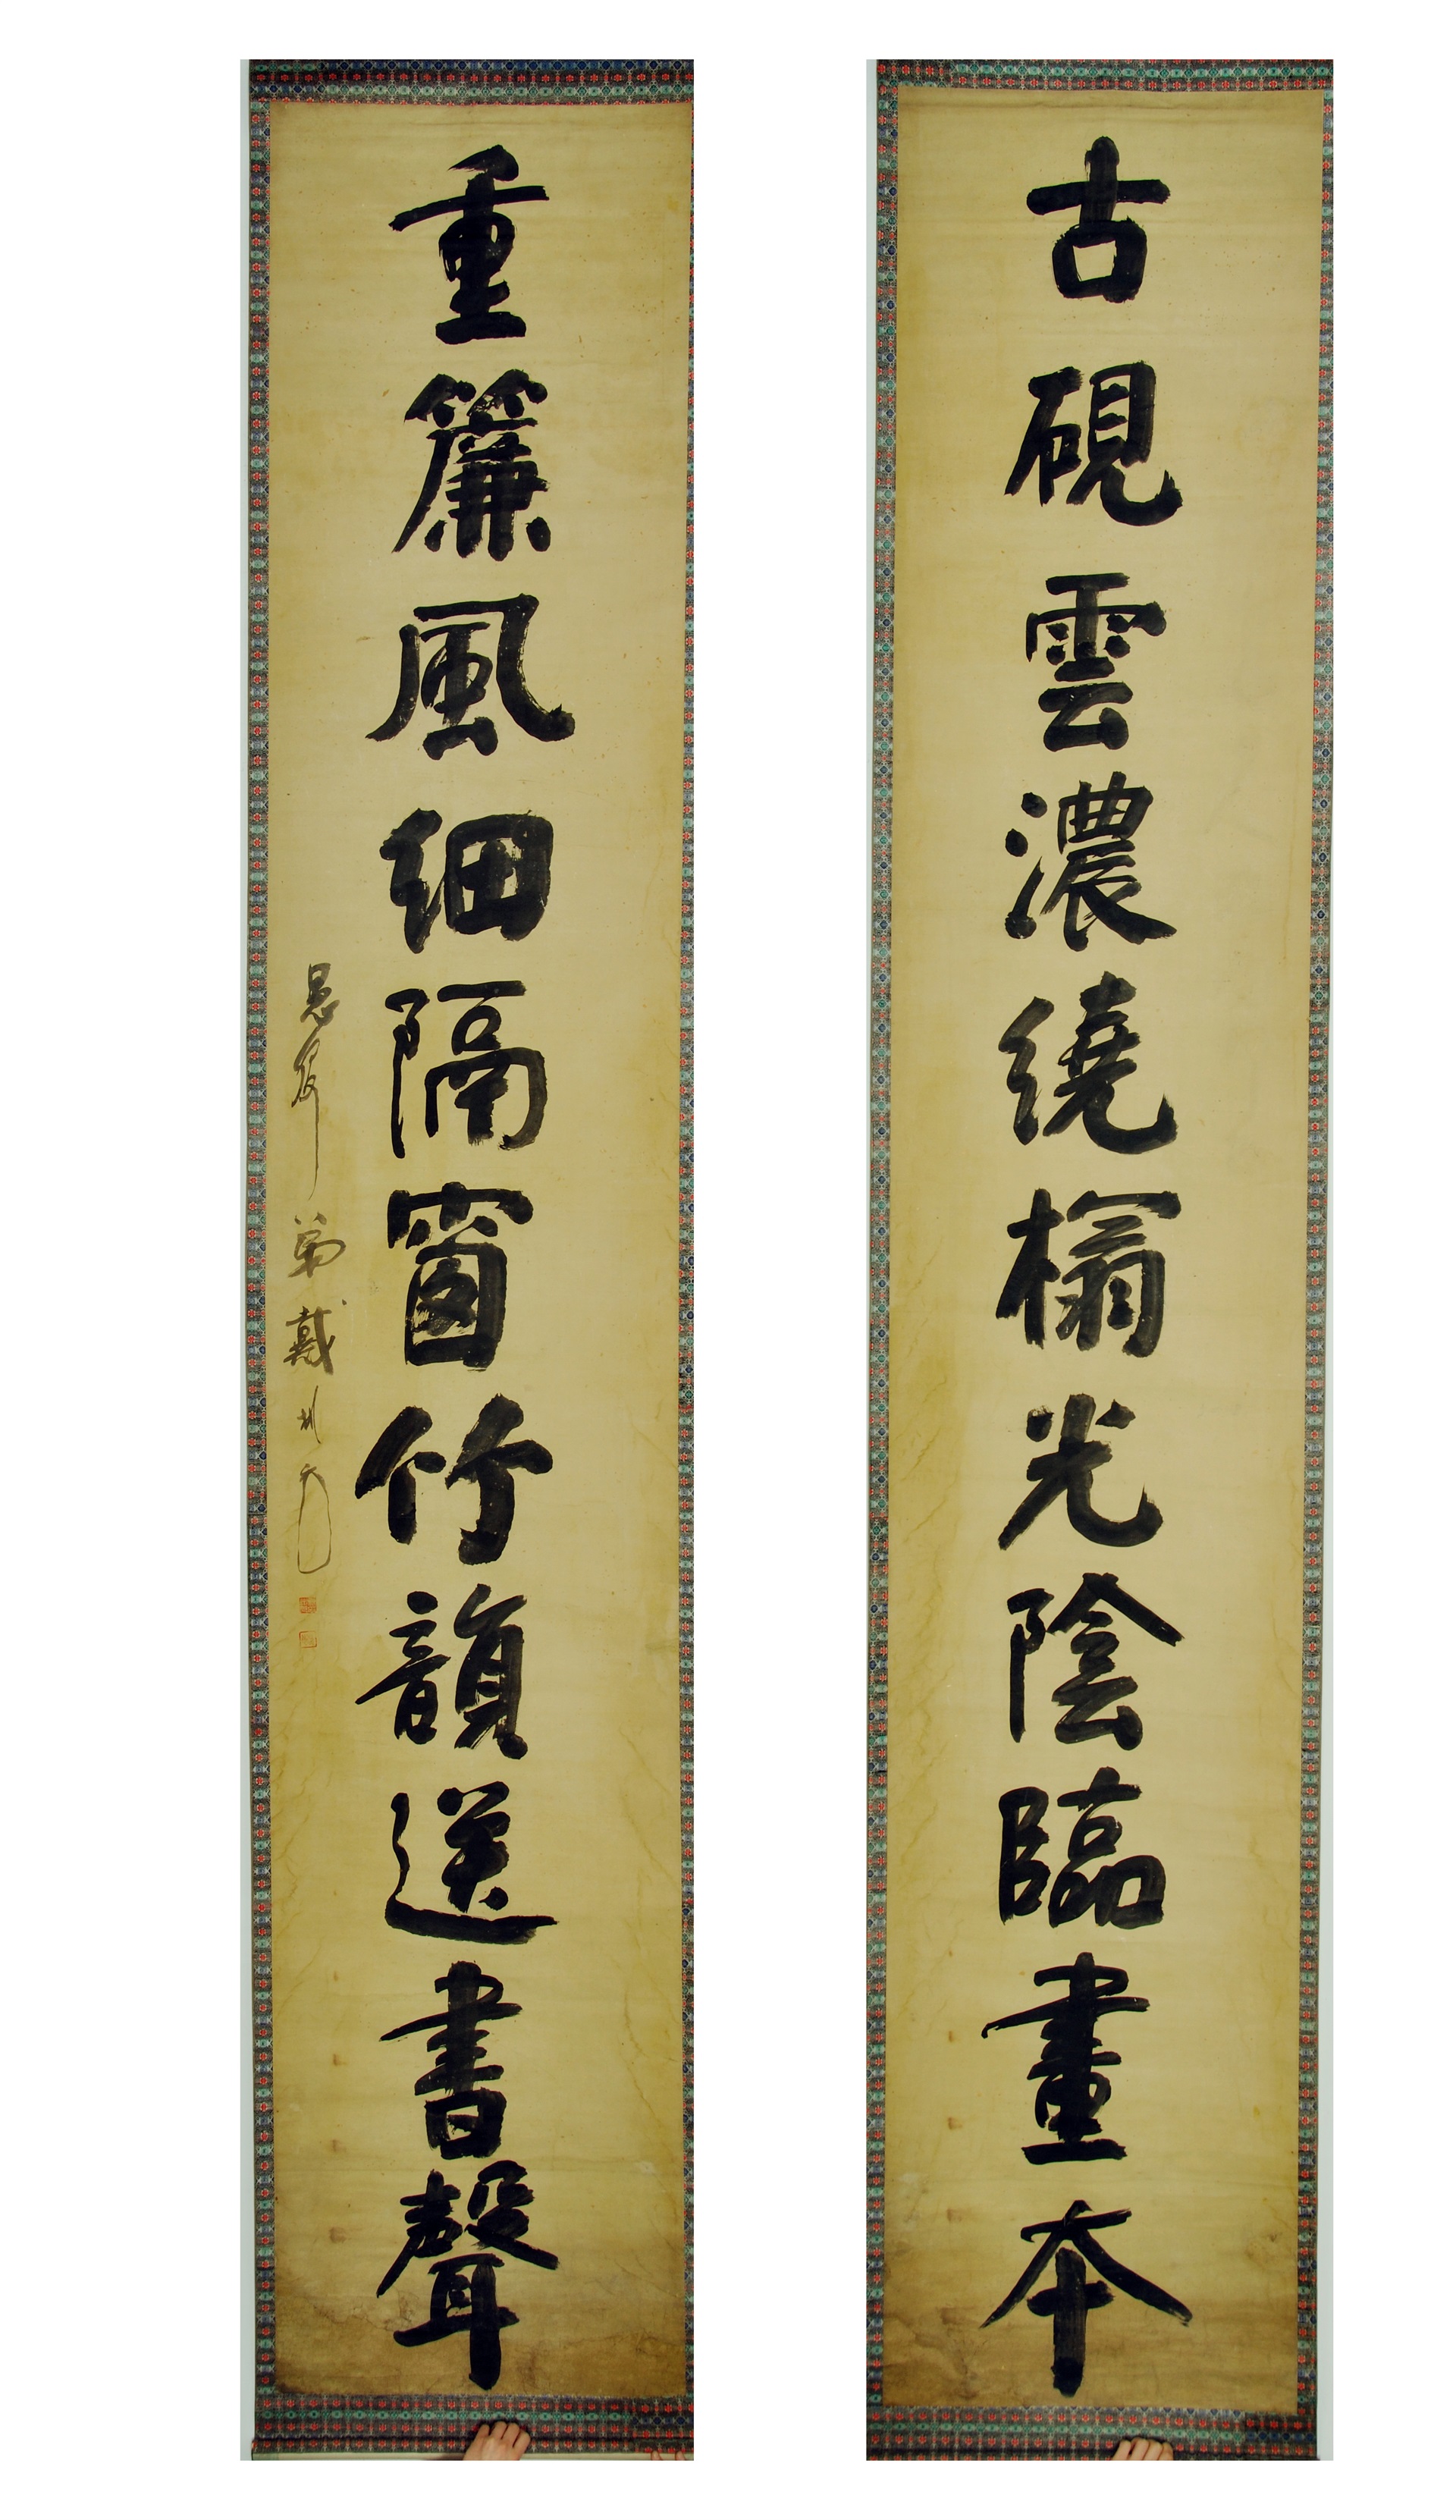 古硯雲濃繞榻光陰臨畫本
重簾風細隔窗竹韻送書聲
愚 弟戴